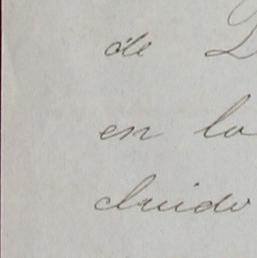 de
en la
cluido